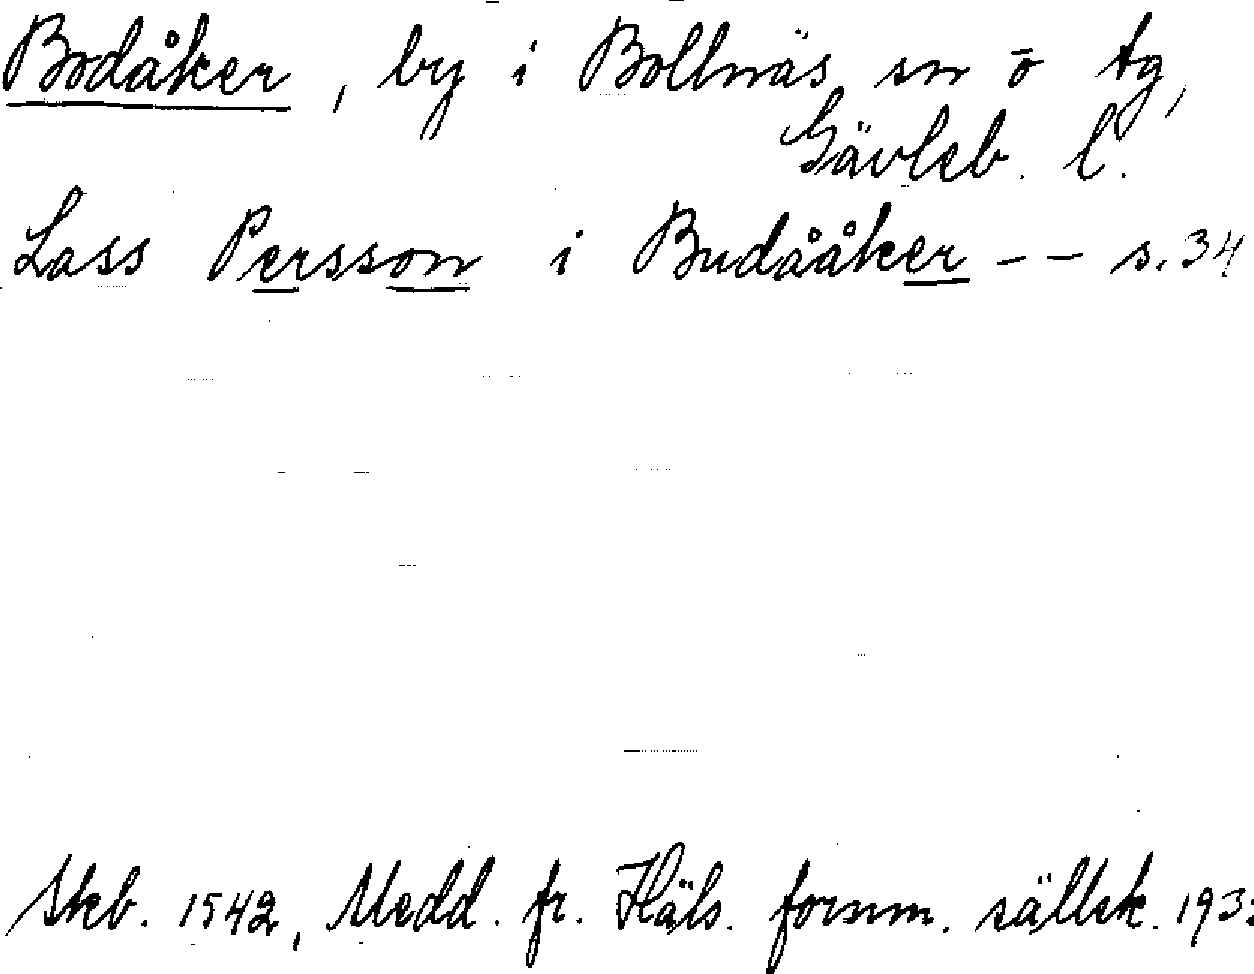 Bodåker, by i Bollnäs sn o tg,
Gävleb. l.
Lass Persson i Budååker -- s. 34
Skb. 1542, Medd. fr. Häls. fornm. sällsk. 193